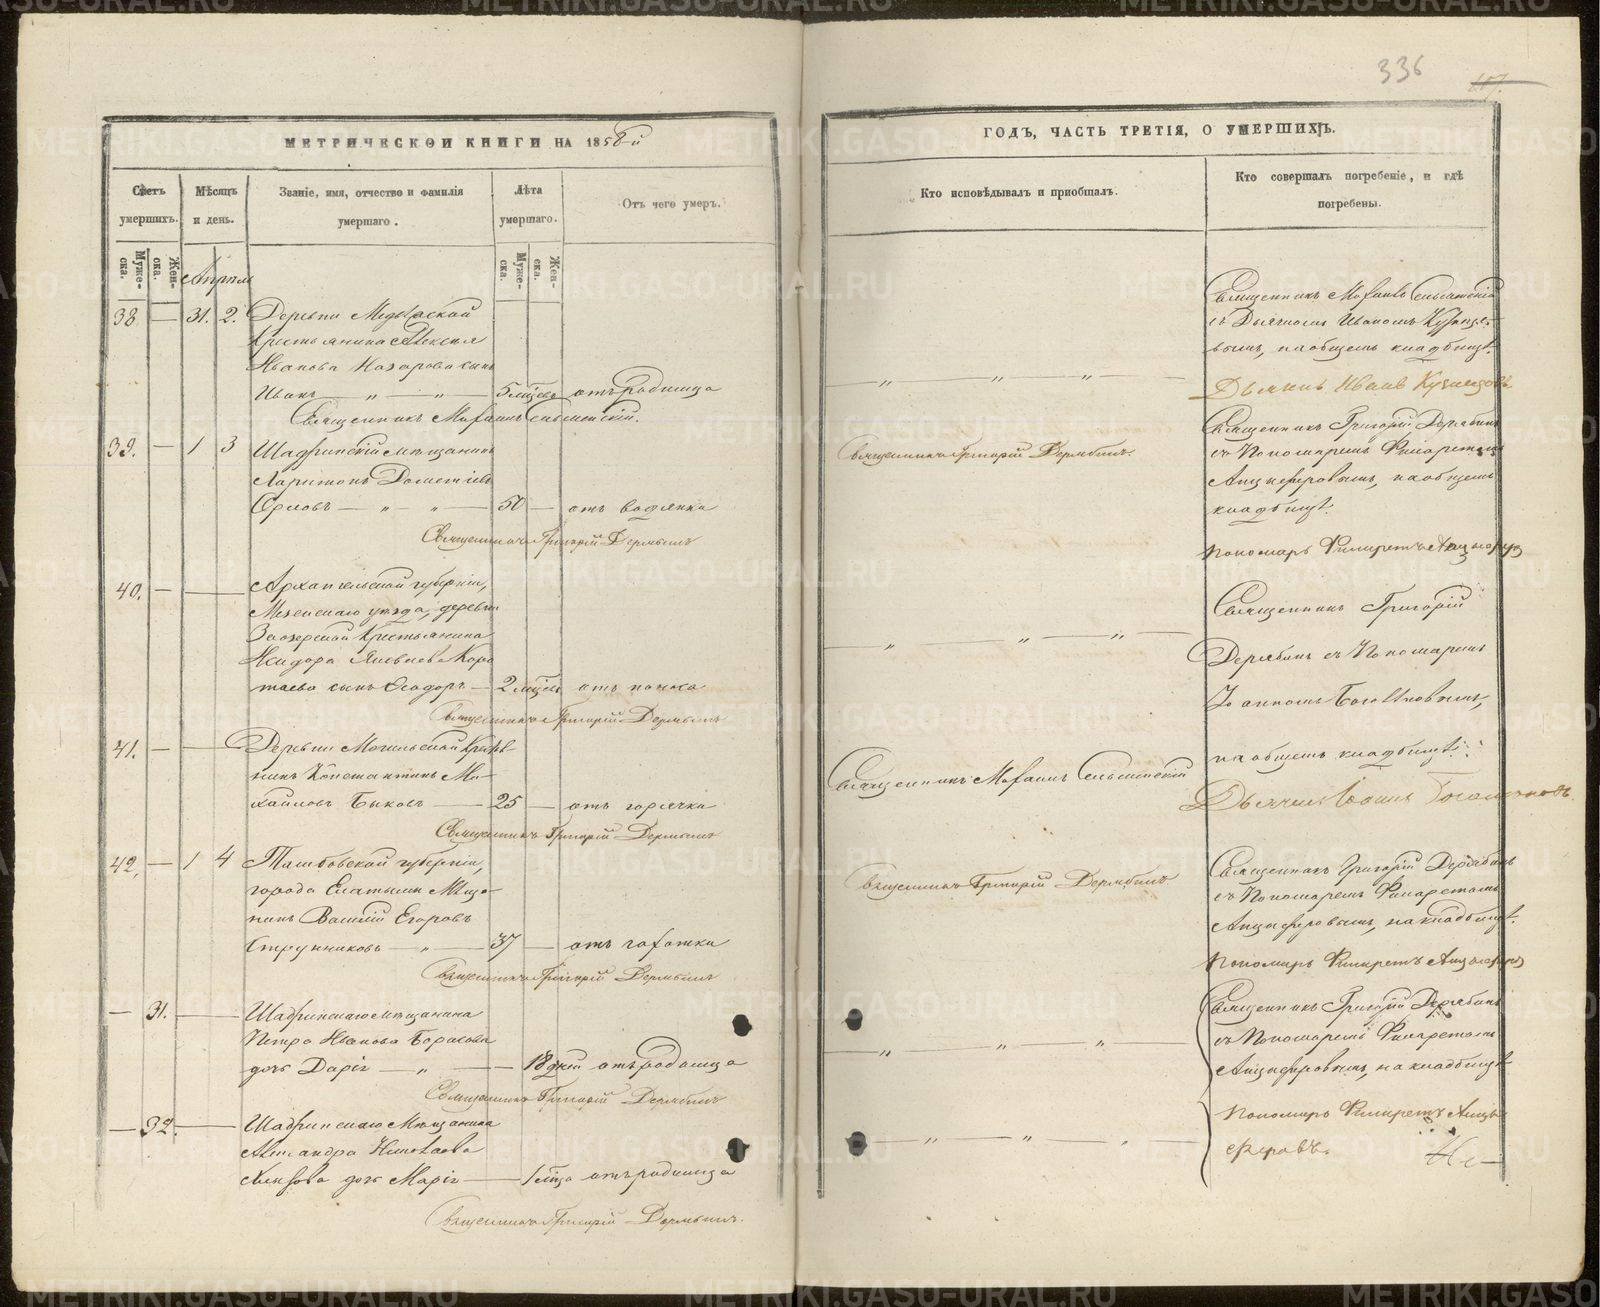 336
107.
МЕТРИЧЕСКОЙ КНИГИ НА 1858й
Счетъ умершихъ.
Мѣсяцъ и день.
Званіе, имя, отчество и фамилія умершаго.
Лѣта умершаго.
Отъ чего умеръ.
Муже-ска.
Жен-ска.
Муже-ска.
Жен-ска.
Апрѣль
38 — 31. 2. Деревни
Крестьянина Алексѣя
Иванова Назарова сынъ
Иванъ „ — „ — 5 мѣсяц. отъ родимца
Священникъ Михаилъ
39. — 1 3 Шадринскій мѣщанинъ
Харитонъ Дометіевъ
Орловъ — „ — „ — 50 — отъ водянки
Священникъ Григорій Дерябинъ
40. — Архангельской губерніи,
Мезенскаго уѣзда, деревни
Заозерской Крестьянина
Исидора Яковлева Коро
таева сынъ Ѳеодоръ — 2 мѣсяц. отъ поноса
Священникъ Григорій Дерябинъ
41. — Деревни Могильской Крест
нинъ Константинъ Ми-
хайловъ Быковъ — 25 — отъ горячки
Священникъ Григорій Дерябинъ
42. — 1 4 Тамбовской губерніи,
города Елатьмы Мѣща-
нинъ Василій Егоровъ
Струнниковъ — „ — 37 — отъ чахотки
Священникъ Григорій Дерябинъ
— 31. — Шадринскаго мѣщанина
Петра Иванова Борисова
дочь Дарія — „ — 18 дней отъ родимца
Священникъ Григорій Дерябинъ
— 32. — Шадринскаго Мѣщанина
Александра Николаева
дочь Марія — 1 мѣсяца отъ родимца
Священникъ Григорій Дерябинъ.
ГОДЪ, ЧАСТЬ ТРЕТІЯ, О УМЕРШИХЪ.
Кто исповѣдывалъ и пріобщалъ.
Кто совершалъ погребеніе, и гдѣ погребены.
Священникъ Михаилъ
съ Дьячкомъ Иваномъ Кузнецо-
вымъ, на общемъ кладбищѣ.
— „ — „ — „ —
Дьячекъ Иванъ Кузнецовъ
Священникъ Григорій Дерябинъ.
Священникъ Григорій Дерябинъ
съ Пономаремъ Филаретомъ
Анциферовымъ, на общемъ
кладбищѣ.
Пономарь Филаретъ Анциферов
— „ — „ — „ —
Священникъ Григорій
Дерябинъ съ Пономаремъ
Іоанномъ
на общемъ кладбищѣ.
Священникъ Михаилъ
Священникъ Григорій Дерябинъ
Священникъ Григорій Дерябинъ
съ Пономаремъ Филаретомъ
Анциферовымъ, на кладбищѣ.
Пономарь Филаретъ Анциферов
— „ — „ — „ —
Священникъ Григорій Дерябинъ
съ Пономаремъ Филаретомъ
Анциферовымъ, на кладбищѣ
— „ — „ — „ —
Пономарь Филаретъ Анци-
феровъ.
METRIKI.GASO-URAL.RU